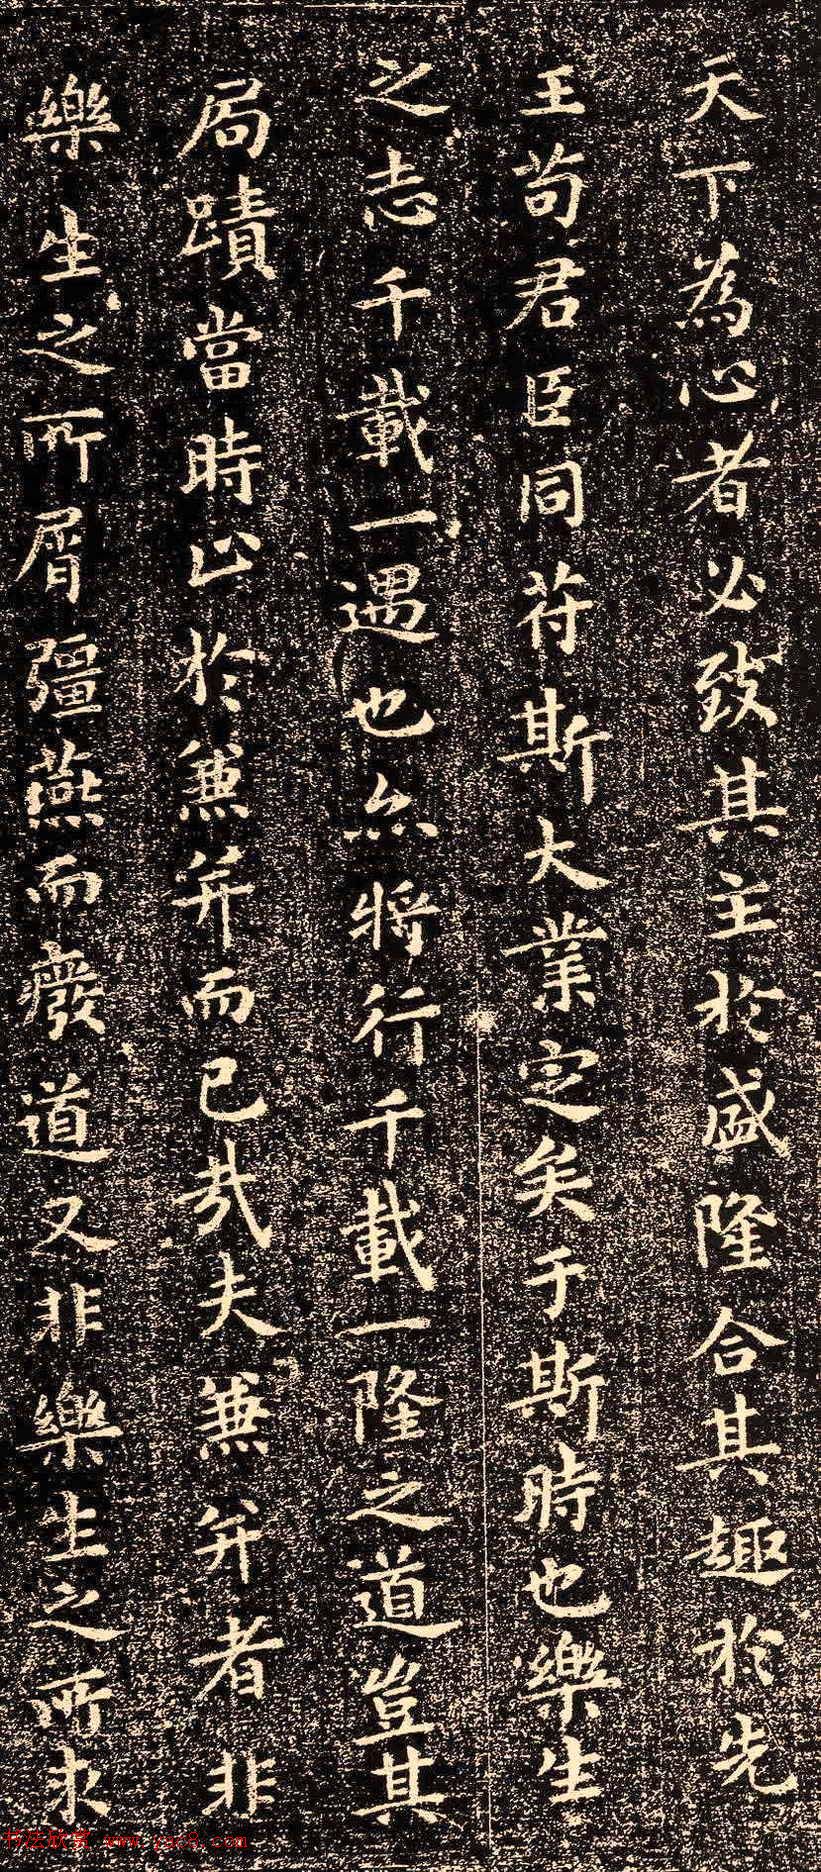 天下為心者必致其主於盛隆合其趣於先
王苟君臣同苻斯大業定矣于斯時也樂生
之志千載一遇也亦將行千載一隆之道豈其
局蹟當時止於兼并而已哉夫兼并者非
樂生之所屑彊燕而廢道又非樂生之所求
书法欣赏 www.yac8.com